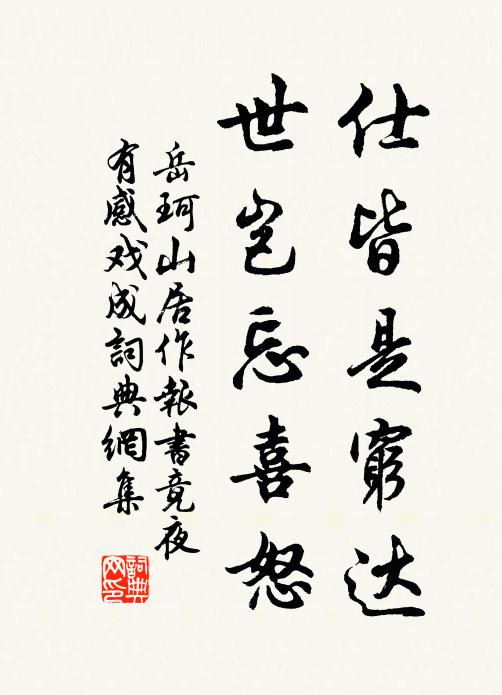 仕皆是窮达
世岂忘喜怒
岳珂山居作報書竟夜
有感戏成詞典網集
詞典
网印